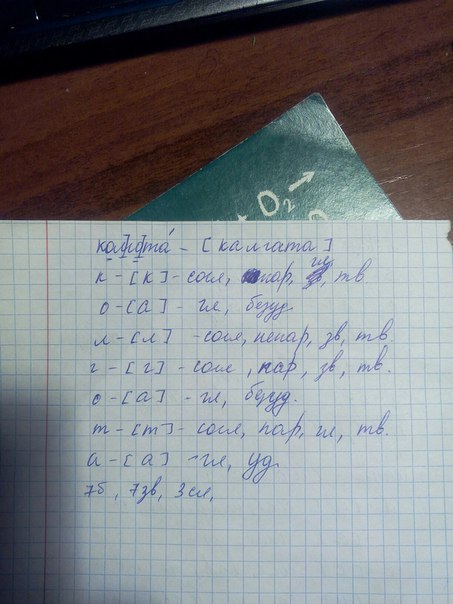 + O₂ →
колгота́ - [калгата]
к - [к] - согл, пар, гл, тв
о - [а] - гл, безуд.
л - [л] - согл, непар, зв, тв.
г - [г] - согл, пар, зв, тв.
о - [а] - гл, безуд.
т - [т] - согл, пар, гл, тв.
а - [а] - гл, уд.
7б, 7зв, 3сл,